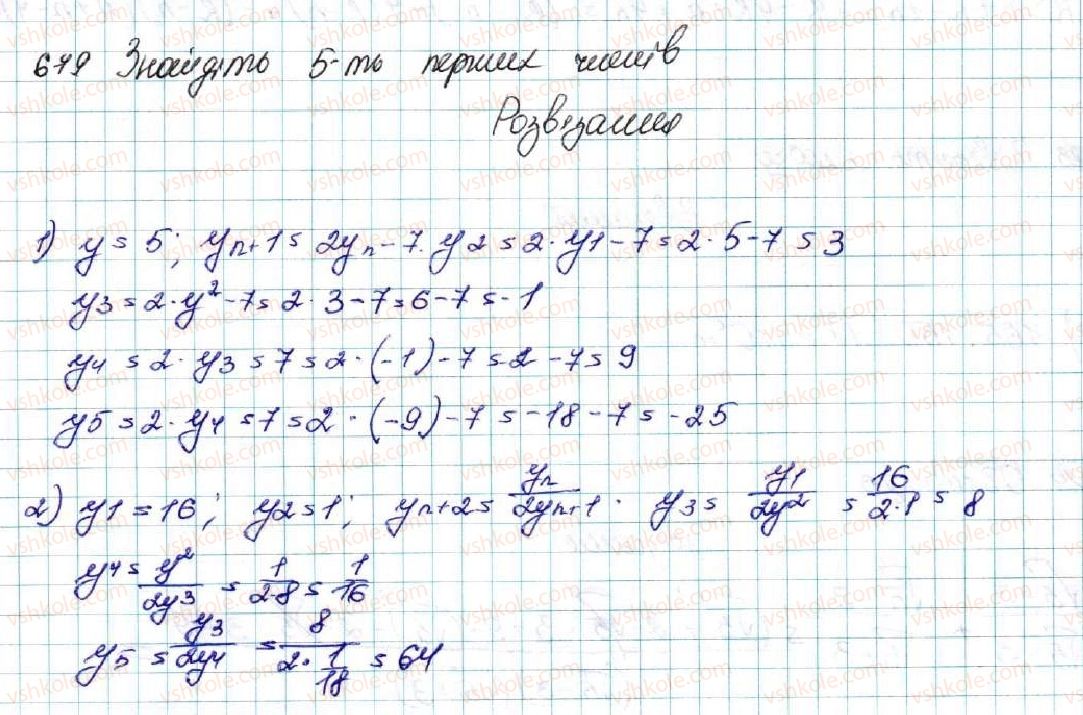 679 Знайдіть 5-ть перших членів
Розв'язання
1) y = 5; yn+1 = 2yn - 7. y2 = 2 · y1 - 7 = 2 · 5 - 7 = 3
y3 = 2 · y² - 7 = 2 · 3 - 7 = 6 - 7 = -1
y4 = 2 · y3 = 7 = 2 · (-1) - 7 = -2 - 7 = 9
y5 = 2 · y4 = 7 = 2 · (-9) - 7 = -18 - 7 = -25
2) y1 = 16; y2 = 1; yn+2 = yn/2yn+1. y3 = y1/2y² = 16/2·1 = 8
y4 = y²/2y3 = 1/2·8 = 1/16
y5 = y3/2y4 = 8/2·1/18 = 64